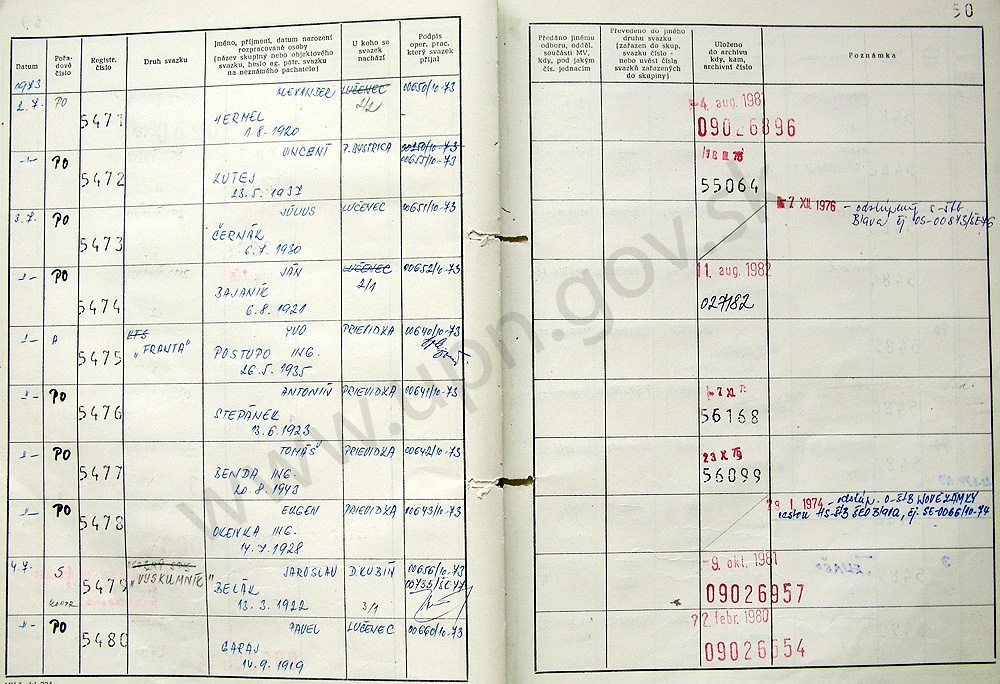 50
Datum
Pořadové číslo
Registr. číslo
Druh svazku
Jméno, příjmení, datum narození
rozpracované osoby
(název skupiny nebo objektového
svazku, heslo ag. pátr. svazku
na neznámého pachatele)
U koho se
svazek
nachází
Podpis
oper. prac.
který svazek
přijal
Předáno jinému
odboru, odděl.
součásti MV,
kdy, pod jakým
čís. jednacím
Převedeno do jiného
druhu svazku
(zařazen do skup.
svazku číslo -
nebo uvést čísla
svazků zařazených
do skupiny)
Uloženo
do archivu
kdy, kam,
archivní číslo
Poznámka
1973
2.7. PO 5471 ALEXANDER LUČENEC 00650/10-73
2/2
HERMEL
1.8.1920
4. aug. 1981
09026896
PO 5472 VINCENT P. BYSTRICA 00250/10-73
00655/10-73
LUTEJ
23.5.1937
55064
3.7. PO 5473 JÚLIUS LUČENEC 00651/10-73
ČERNÁK
6.7.1930
7 XII. 1976 - odstúpený S-ŠtB
Blava
PO 5474 JÁN LUČENEC 00652/10-73
2/1
BAJANÍK
6.8.1921
11. aug. 1982
027182
A 5475 KTS YVO PRIEVIDZA 00640/10-73
„FRANTA“
POSTUPO ING.
26.5.1935
PO 5476 ANTONIN PRIEVIDZA 00641/10-73
STEPÁNEK
13.6.1923
56168
PO 5477 TOMÁŠ PRIEVIDZA 00642/10-73
BENDA ING.
20.8.1943
23 X. 79
56099
PO 5478 EUGEN PRIEVIDZA 00643/10-73
OKENKA ING.
14.7.1928
28 I. 1974 - odstúp. O-ŠtB NOVÉ ZÁMKY
4.7. S 5479 JAROSLAV D. KUBÍN 00656/10-73
„VÝSKUMNÍK“
BELÁK
13.3.1922
3/1
9. okt. 1981
09026957
PO 5480 PAVEL LUČENEC 00660/10-73
GARAJ
14.9.1919
22. febr. 1980
09026554
www.upn.gov.sk